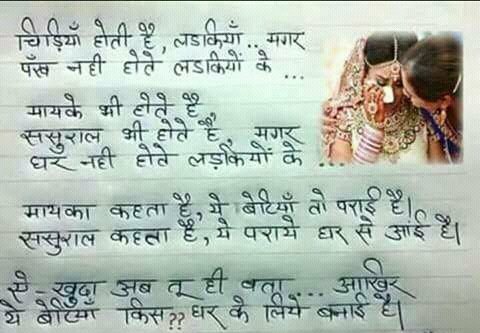 चिड़ियाँ होती है, लडकियाँ.. मगर
पँख नही होते लडकियों के ...
मायके भी होते है
ससुराल भी होते है, मगर
घर नही होते लड़कियों के ...
मायका कहता है, ये बेटियाँ तो पराई है।
ससुराल कहता है, ये पराये घर से आई है।
ऐ - खुदा अब तू ही बता ... आखिर
ये बेटियाँ किस?? घर के लिये बनाई है।